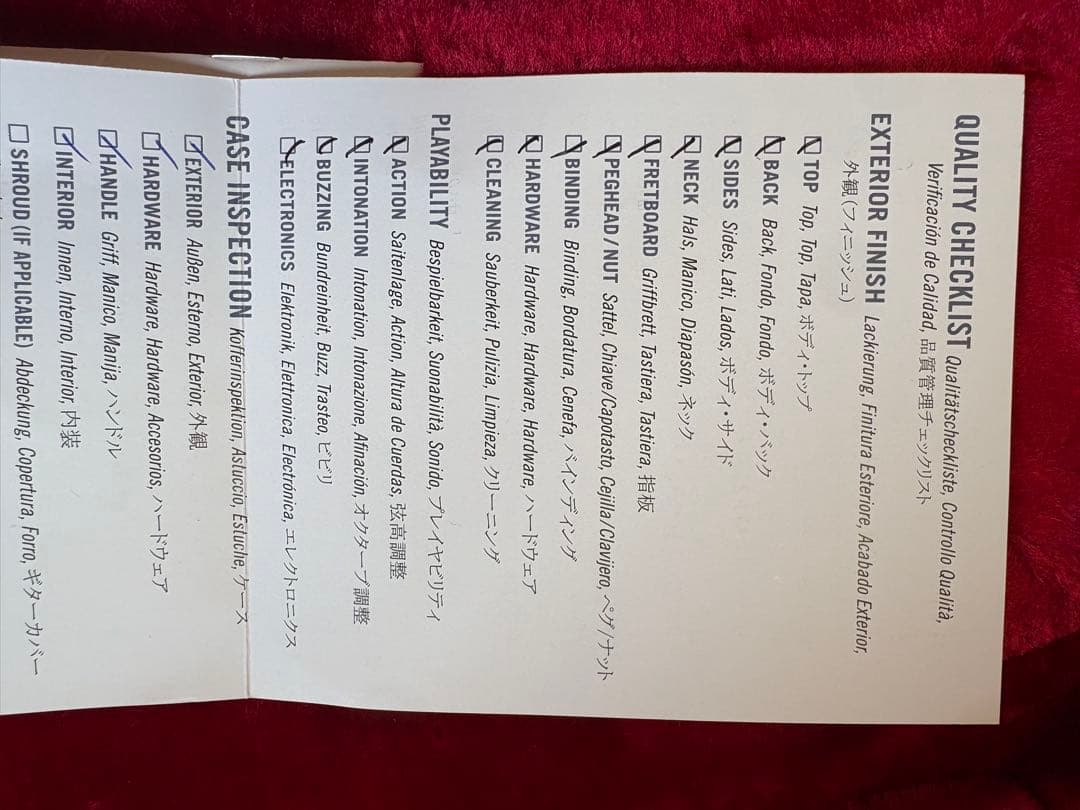 QUALITY CHECKLIST Qualitätscheckliste, Controllo Qualità,
Verificación de Calidad, 品質管理チェックリスト
EXTERIOR FINISH Lackierung, Finitura Esteriore, Acabado Exterior,
外観(フィニッシュ)
TOP Top, Top, Tapa, ボディ・トップ
BACK Back, Fondo, Fondo, ボディ・バック
SIDES Sides, Lati, Lados, ボディ・サイド
NECK Hals, Manico, Diapasón, ネック
FRETBOARD Griffbrett, Tastiera, Tastiera, 指板
PEGHEAD/NUT Sattel, Chiave/Capotasto, Cejilla/Clavijero, ペグ/ナット
BINDING Binding, Bordatura, Cenefa, バインディング
HARDWARE Hardware, Hardware, Hardware, ハードウェア
CLEANING Sauberkeit, Pulizia, Limpieza, クリーニング
PLAYABILITY Bespielbarkeit, Suonabilità, Sonido, プレイヤビリティ
ACTION Saitenlage, Action, Altura de Cuerdas, 弦高調整
INTONATION Intonation, Intonazione, Afinación, オクターブ調整
BUZZING Bundreinheit, Buzz, Trasteo, ビビリ
ELECTRONICS Elektronik, Elettronica, Electrónica, エレクトロニクス
CASE INSPECTION Kofferinspektion, Astuccio, Estuche, ケース
EXTERIOR Außen, Esterno, Exterior, 外観
HARDWARE Hardware, Hardware, Accesorios, ハードウェア
HANDLE Griff, Manico, Manija, ハンドル
INTERIOR Innen, Interno, Interior, 内装
SHROUD (IF APPLICABLE) Abdeckung, Copertura, Forro, ギターカバー